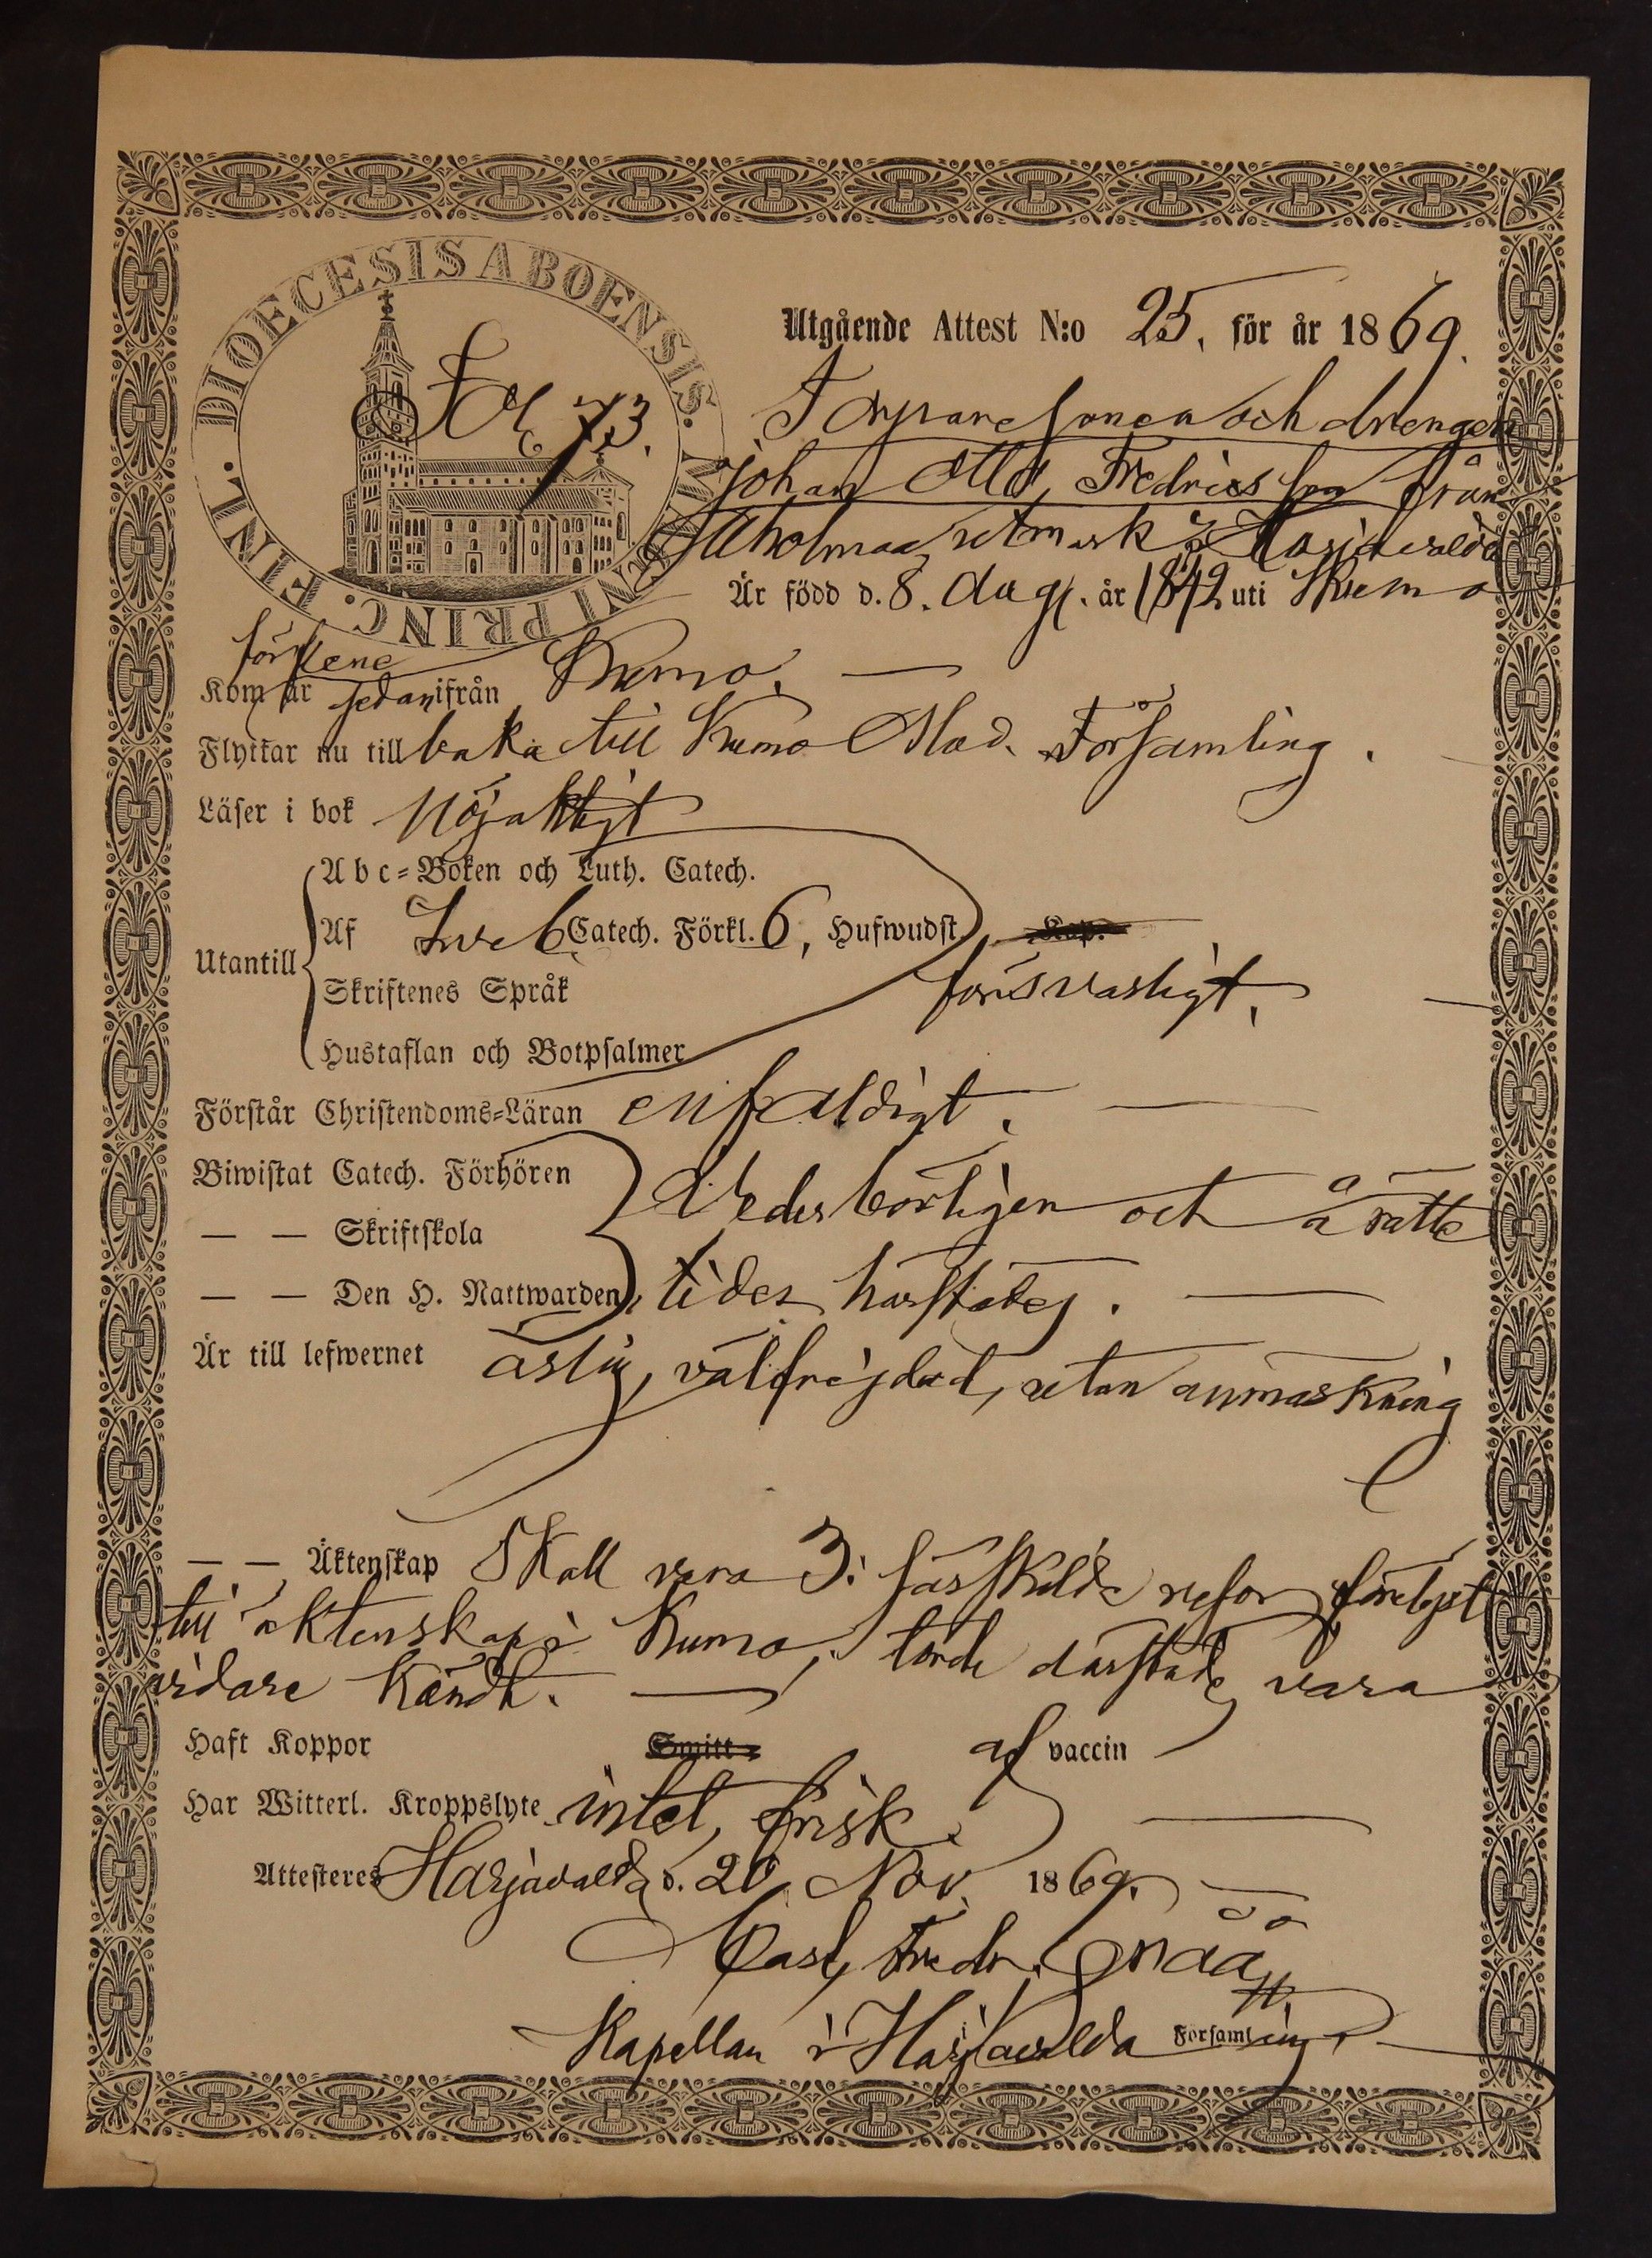 DIOECESIS ABOENSIS. M. PRINC. FINL.
Utgående Attest N:o 25, för år 1869.
73.
Torparesonen och drengen
Johan Otto Fredricsson från
utmark i Harjavalda
Är född d. 8. Aug. år 1842 uti Kumo
Kom år sedan ifrån Kumo.
Flyttar nu tillbaka till Kumo Mod. Församling.
Läser i bok nöjaktigt
Abc-Boken och Luth. Catech.
Utantill
Af Sveb Catech. Förkl. 6, Hufwudst. Kap.
Skriftenes Språk
försvarligt.
Hustaflan och Botpsalmer
Förstår Christendoms-Läran enfaldigt.
Biwistat Catech. Förhören
Vederbörligen och å rätta
— — Skriftskola
— — Den H. Nattwarden tider härstädes.
Är till lefwernet ärlig, välfrejdad, utan anmärkning
— — Äktenskap Skall vara 3:
till äktenskap i Kumo, torde därstädes vara
vidare kändt.
Haft Koppor Smitt- af vaccin
Har Witterl. Kroppslyte intet, frisk.
Attesteres Harjavalda d. 20 Nov. 1869.
Carl Fredr. Grää
Kapellan i Harjavalda Församling.